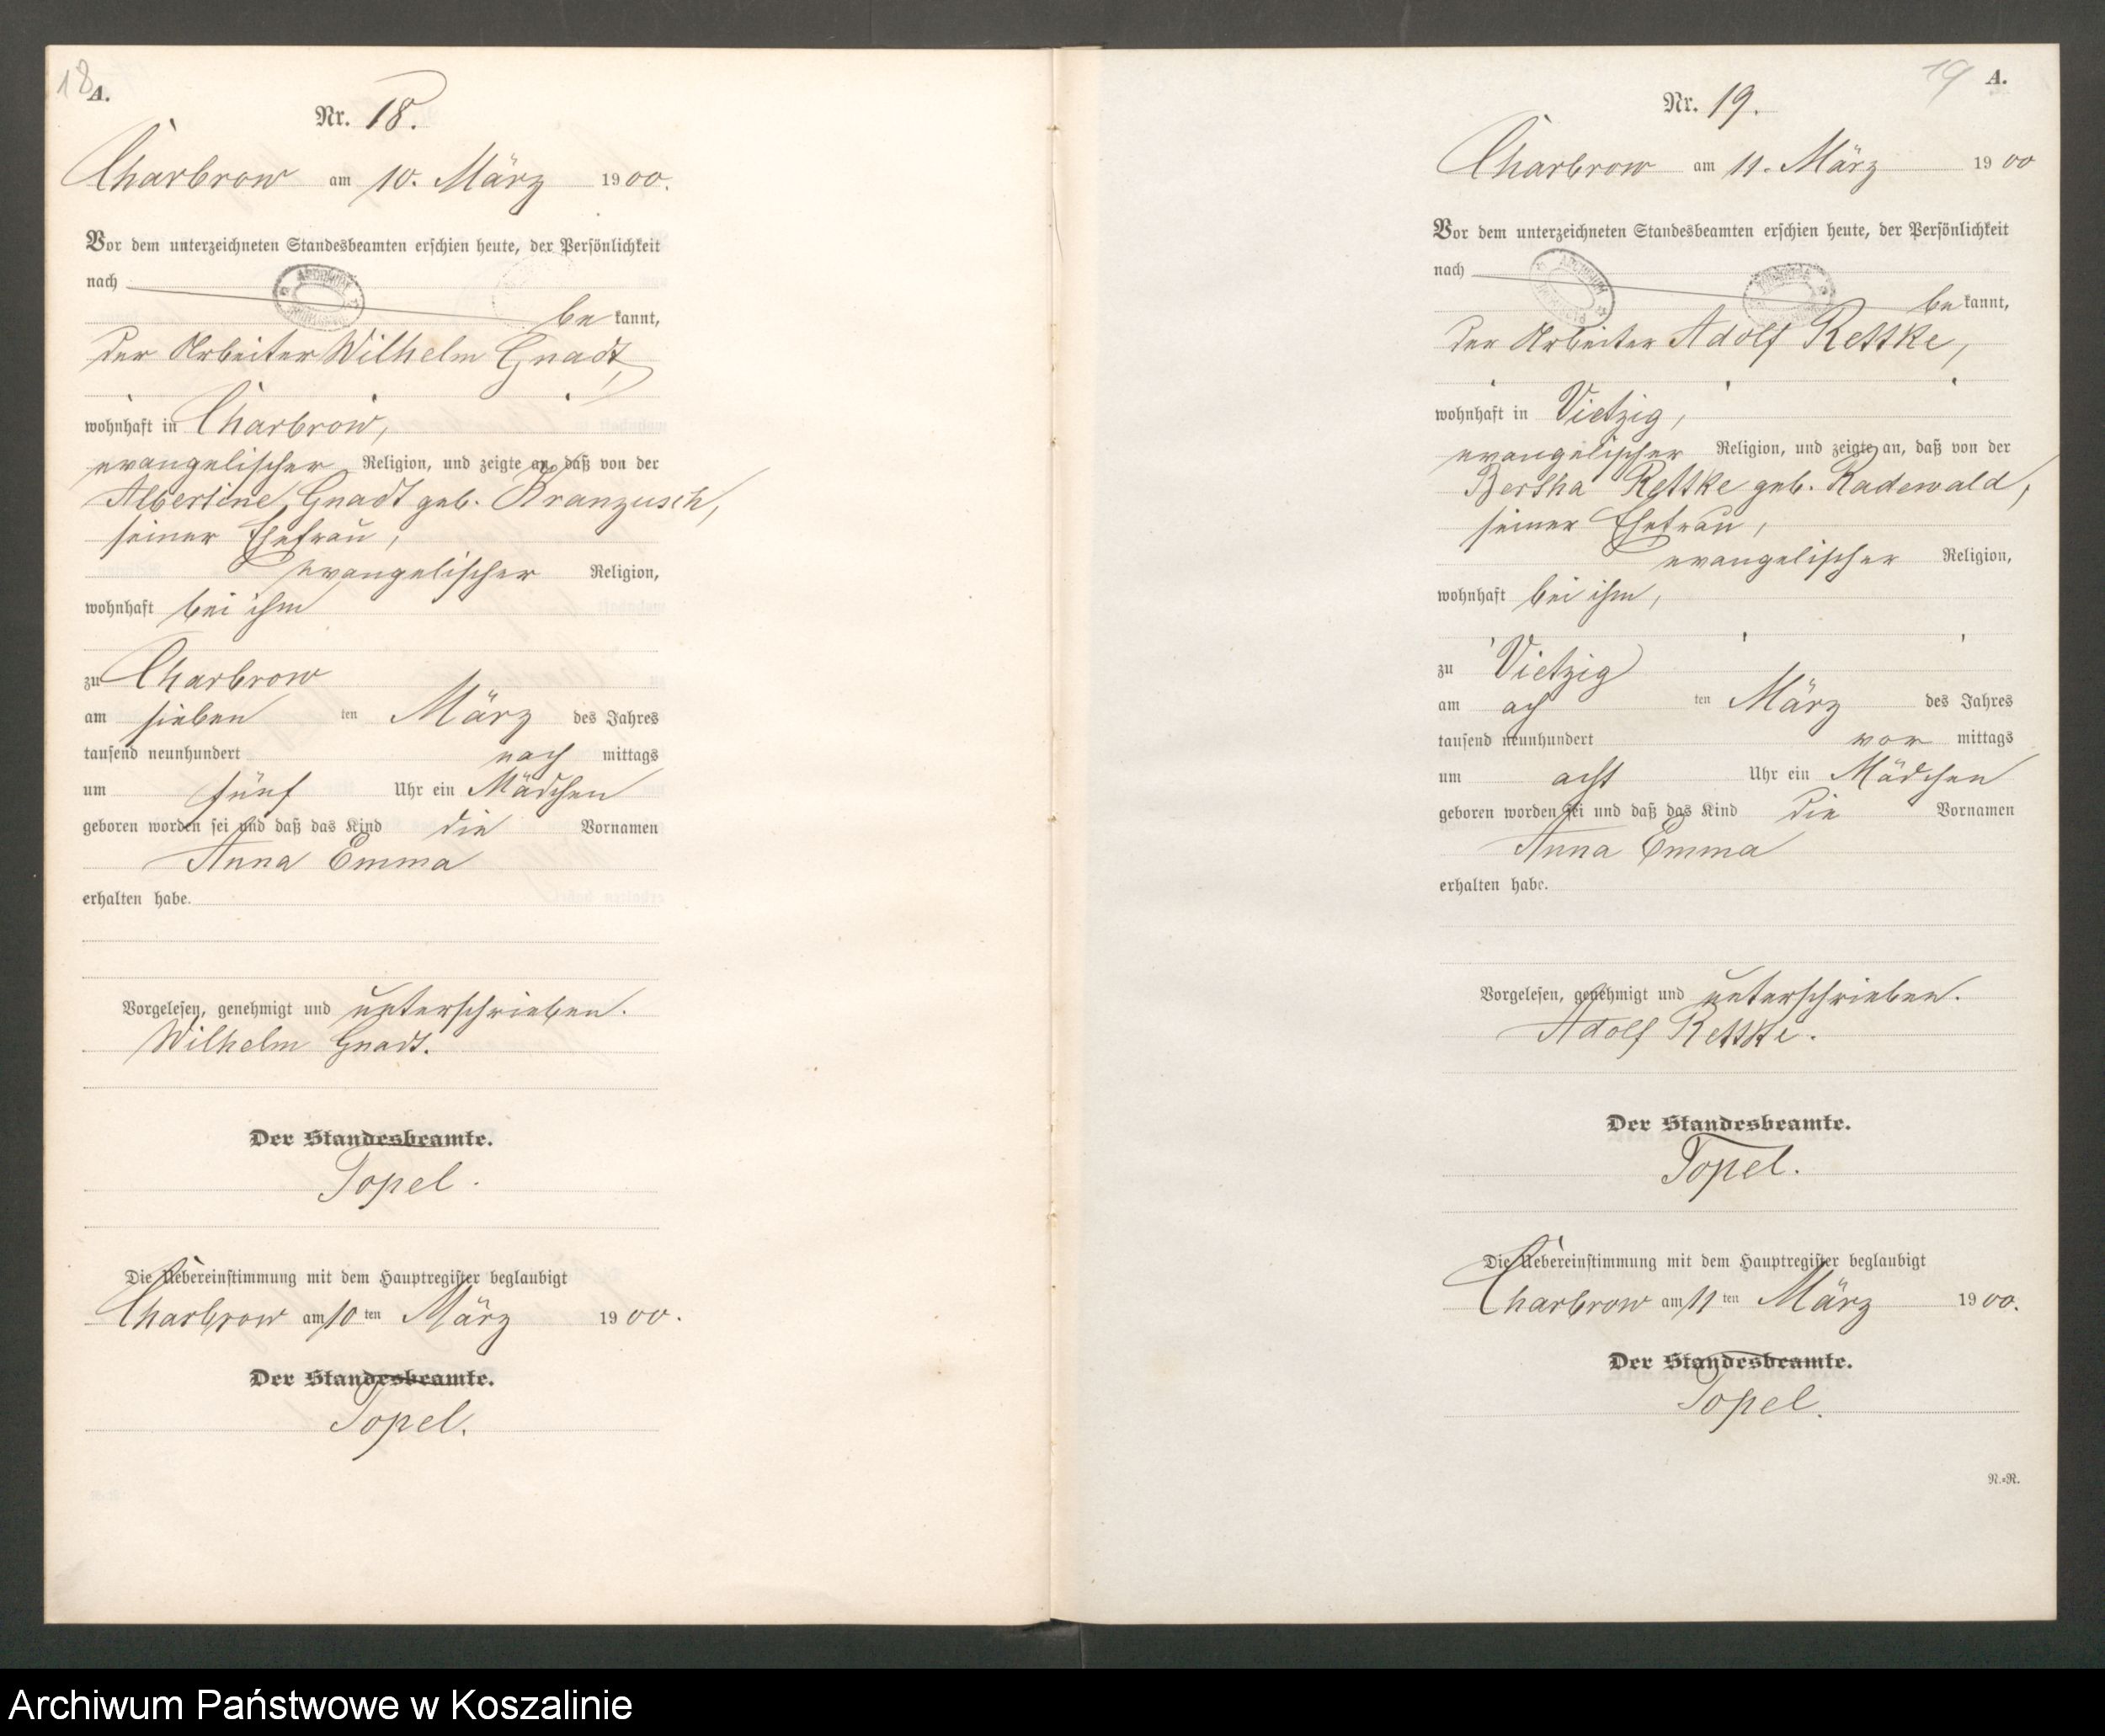 18
A.
Nr. 18.
Charbrow am 10. März 1900.
Vor dem unterzeichneten Standesbeamten erschien heute, der Persönlichkeit
nach
be kannt,
der Arbeiter Wilhelm Gnadt,
wohnhaft in Charbrow,
evangelischer Religion, und zeigte an, daß von der
Albertine Gnadt geb. Kranzusch,
seiner Ehefrau,
evangelischer Religion,
wohnhaft bei ihm
zu Charbrow
am sieben ten März des Jahres
tausend neunhundert nach mittags
um fünf Uhr ein Mädchen
geboren worden sei und daß das Kind die Vornamen
Anna Emma
erhalten habe.
Vorgelesen, genehmigt und unterschrieben.
Wilhelm Gnadt.
Der Standesbeamte.
Topel.
Die Uebereinstimmung mit dem Hauptregister beglaubigt
Charbrow am 10 ten März 1900.
Der Standesbeamte.
Topel.
19
A.
Nr. 19.
Charbrow am 11. März 1900
Vor dem unterzeichneten Standesbeamten erschien heute, der Persönlichkeit
nach
be kannt,
der Arbeiter Adolf Rettke,
wohnhaft in Vietzig,
evangelischer Religion, und zeigte an, daß von der
Bertha Rettke geb. Radewald,
seiner Ehefrau,
evangelischer Religion,
wohnhaft bei ihm,
zu Vietzig
am ach ten März des Jahres
tausend neunhundert vor mittags
um acht Uhr ein Mädchen
geboren worden sei und daß das Kind die Vornamen
Anna Emma
erhalten habe.
Vorgelesen, genehmigt und unterschrieben.
Adolf Rettke.
Der Standesbeamte.
Topel.
Die Uebereinstimmung mit dem Hauptregister beglaubigt
Charbrow am 11 ten März 1900.
Der Standesbeamte.
Topel.
N.=R.
Archiwum Państwowe w Koszalinie